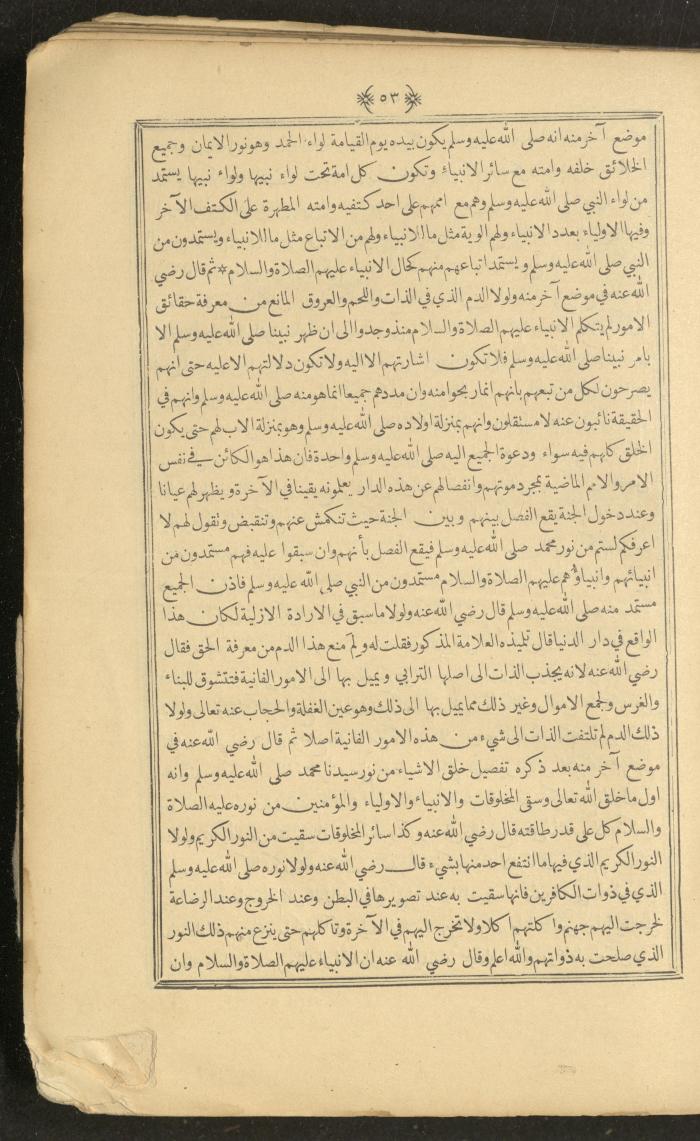 ٥٣
موضع آخر منه انه صلى الله عليه وسلم يكون بيده يوم القيامة لواء الحمد وهو نور الايمان وجميع
الخلائق خلفه وامته مع سائر الانبياء وتكون كل امة تحت لواء نبيها ولواء نبيها يستمد
من لواء النبي صلى الله عليه وسلم وهم مع اممهم على احد كتفيه وامته المطهرة على الكتف الآخر
وفيها الاولياء بعدد الانبياء ولهم الوية مثل ما الانبياء ولهم من الاتباع مثل ما الانبياء ويستمدون من
النبي صلى الله عليه وسلم ويستمد اتباعهم منهم كحال الانبياء عليهم الصلاة والسلام * ثم قال رضي
الله عنه في موضع آخر منه ولولا الدم الذي في الذات واللحم والعروق المانع من معرفة حقائق
الامور لم يتكلم الانبياء عليهم الصلاة والسلام منذ وجدوا الى ان ظهر نبينا صلى الله عليه وسلم الا
بامر نبينا صلى الله عليه وسلم فلا تكون اشارتهم الا اليه ولا تكون دلالتهم الا عليه حتى انهم
يصرحون لكل من تبعهم بانهم انما ربحوا منه وان مددهم جميعا انما هو منه صلى الله عليه وسلم وانهم في
الحقيقة نائبون عنه لا مستقلون وانهم بمنزلة اولاده صلى الله عليه وسلم وهو بمنزلة الاب لهم حتى يكون
الخلق كلهم فيه سواء ودعوة الجميع اليه صلى الله عليه وسلم واحدة فان هذا هو الكائن في نفس
الامر والامم الماضية بمجرد موتهم وانفصالهم عن هذه الدار يعلمونه يقينا في الآخرة ويظهر لهم عيانا
وعند دخول الجنة يقع الفصل بينهم وبين الجنة حيث تنكمش عنهم وتنقبض وتقول لهم لا
اعرفكم لستم من نور محمد صلى الله عليه وسلم فيقع الفصل بأنهم وان سبقوا عليه فهم مستمدون من
انبيائهم وانبياؤهم عليهم الصلاة والسلام مستمدون من النبي صلى الله عليه وسلم فاذن الجميع
مستمد منه صلى الله عليه وسلم قال رضي الله عنه ولولا ما سبق في الارادة الازلية لكان هذا
الواقع في دار الدنيا قال تلميذه العلامة المذكور فقلت له ولم منع هذا الدم من معرفة الحق فقال
رضي الله عنه لانه يجذب الذات الى اصلها الترابي ويميل بها الى الامور الفانية فتتشوق للبناء
والغرس ولجمع الاموال وغير ذلك مما يميل بها الى ذلك وهو عين الغفلة والحجاب عنه تعالى ولولا
ذلك الدم لم تلتفت الذات الى شيء من هذه الامور الفانية اصلا ثم قال رضي الله عنه في
موضع آخر منه بعد ذكره تفصيل خلق الاشياء من نور سيدنا محمد صلى الله عليه وسلم وانه
اول ما خلق الله تعالى وسقى المخلوقات والانبياء والاولياء والمؤمنين من نوره عليه الصلاة
والسلام كل على قدر طاقته قال رضي الله عنه وكذا سائر المخلوقات سقيت من النور الكريم ولولا
النور الكريم الذي فيها ما انتفع احد منها بشيء قال رضي الله عنه ولولا نوره صلى الله عليه وسلم
الذي في ذوات الكافرين فانها سقيت به عند تصويرها في البطن وعند الخروج وعند الرضاعة
لخرجت اليهم جهنم واكلتهم اكلا ولا تخرج اليهم في الآخرة وتاكلهم حتى ينزع منهم ذلك النور
الذي صلحت به ذواتهم والله اعلم وقال رضي الله عنه ان الانبياء عليهم الصلاة والسلام وان